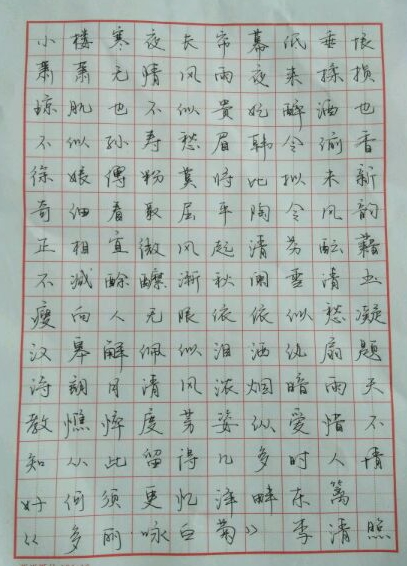 小楼寒夜长帘幕低垂恨
萧萧无情风雨夜来揉损
琼肌也不似贵妃醉酒也
不似孙寿愁眉韩令偷香
徐娘傅粉莫将比拟未新
奇细看取屈平陶令风韵
正相宜微风起清芬酝藉
不减酴醾渐秋阑雪清玉
瘦向人无限依依似愁凝
汉皋解佩似泪洒纨扇题
诗朗月清风浓烟暗雨天
教憔悴度芳姿纵爱惜不
知从此留得几多时人情
好何须更忆泽畔东篱
《多丽·咏白菊》李清照